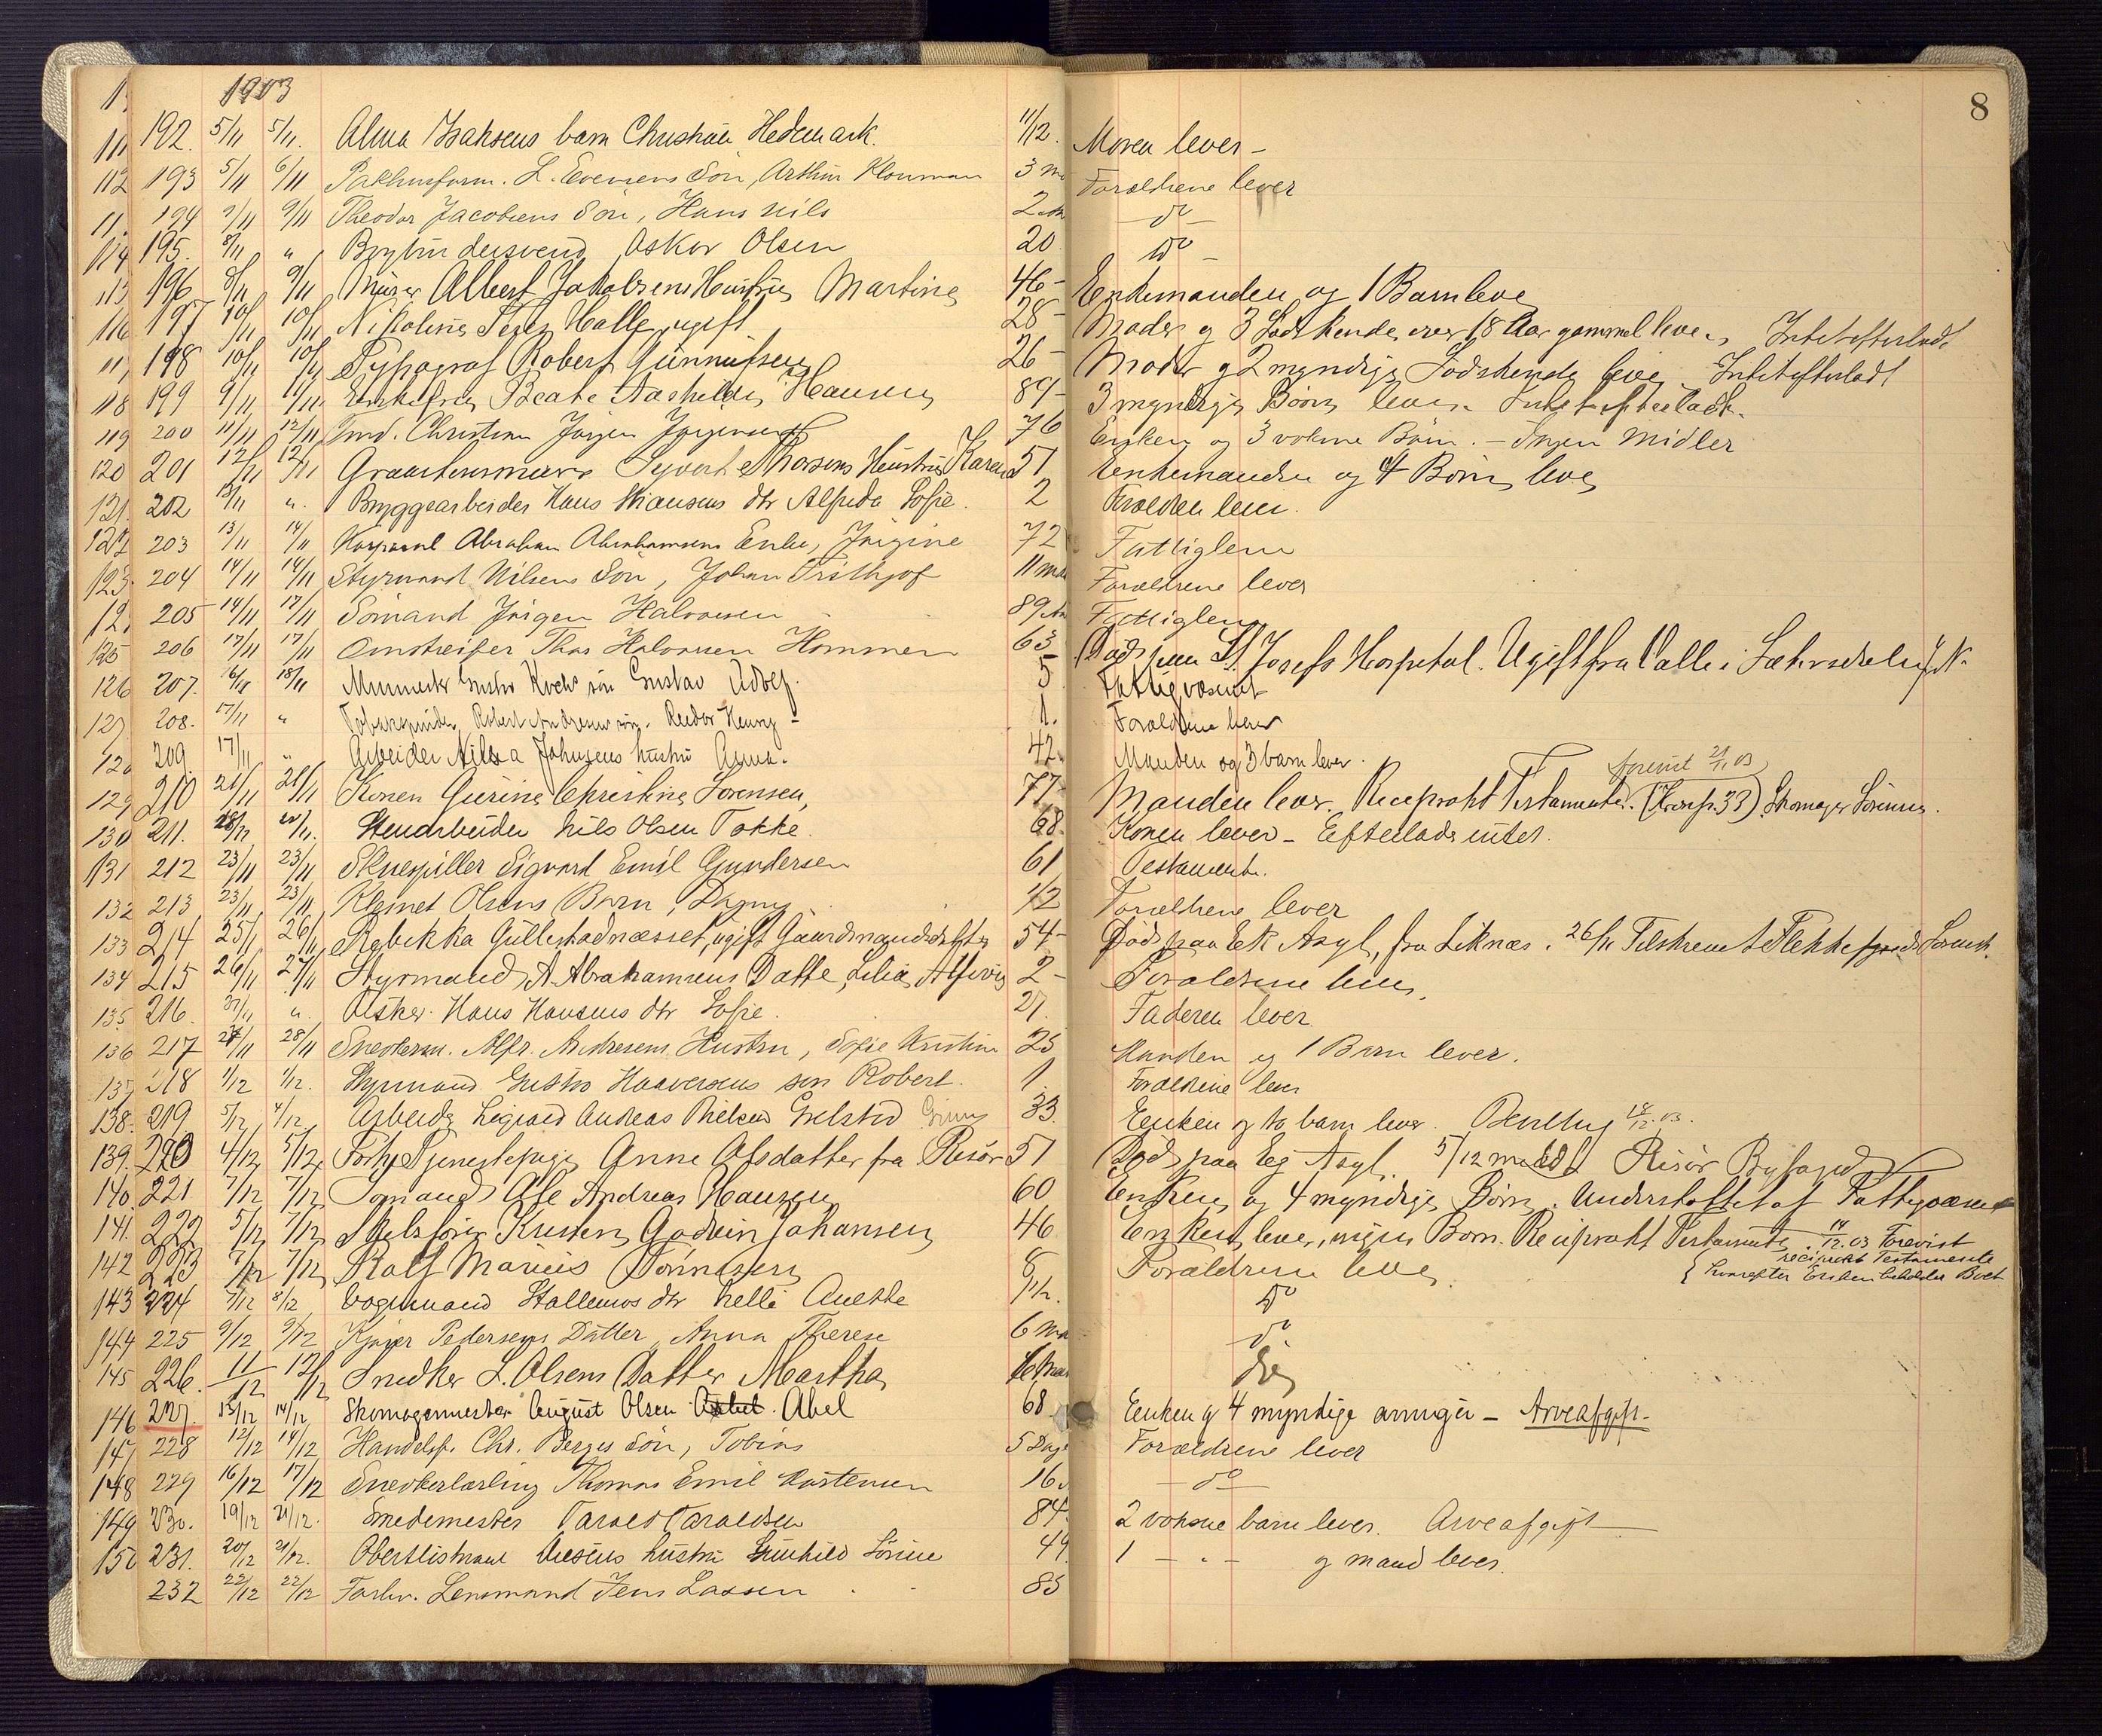 8
1903
192. 5/11 5/11. Alma Isaksens barn Christian Hedemark. 11/12. Moren lever -
112 193 5/11 6/11 Pakhusform. L. Evensens Søn, Arthur Klouman 3 Forældrene lever
194 9/11 9/11 Theodor Jacobsens Søn, Hans Nils 2 - do -
114 195. 8/11 " Bogbindersvend Oskar Olsen 20 Do -
115 196 8/11 9/11 Murer Albert Jakobsens Hustru Martine 46 - Enkemanden og 1 Barn leve
116 197 10/11 10/11 Nikoline Halle, ugift 28 - Moder og 3 Sødskende over 18 Aar gammel leve. Intet efterladt
117 198 10/11 10/11 Typograf Robert Gunnufsen 26 - Moder og 2 myndige Sødskende leve Intet efterladt
118 199 9/11 11/11 Enkefru Beate Hansen 84 - 3 myndige Børn lever. Intet efterladt.
119 200 11/11 12/11 Christian Jørgen Jørgensen 76 Enken og 3 voksne Børn. - Ingen Midler
120 201 12/11 12/11 Syvert Thorsens Hustru Karen 51 Enkemanden og 4 Børn leve
121 202 13/11 ". Bryggearbeider Hans Hansens dtr Alfreda Sofie. 2 Forældren lever.
122 203 13/11 14/11 Korporal Abraham Abrahamsens Enke, Jørgine 72 Fattiglem
123. 204 14/11 14/11 Styrmand Nilsens Søn, Johan Frithjof 11 Forældrene lever
205 14/11 17/11 Sømand Jørgen Halvorsen 89 Fattiglem
125 206 17/11 17/11 Omstreifer Thor Halvorsen Hommen 63 Død paa St. Josefs Hospital. Ugift fra Valle i
126 207. 16/11 18/11 Gustav Kochs søn Gustav Adolf. 5 Fattigvæsenet
127 208. 17/11 " Robert Andresens søn. Reidar Henry - 1. Forældrene lever
209. 17/11 " Arbeider Nils Johnsens hustru Anna. 42. Manden og 3 barn lever.
forevist 21/11 03
129 210 21/11 21/11 Konen Gurine Christine Sørensen, 77 - Manden lever. Reciprokt Testamente. Skomager Sørensen.
130 211. Stenarbeider Nils Olsen Tokke. 68. Konen lever - Efterlade intet.
131 212 23/11 23/11 Skuespiller Sigvard Emil Gundersen 61 Testamente.
132 213 23/11 23/11 Kleinet Olsens Barn, Dagny 1/2 Forældrene lever
133 214 25/11 26/11 Rebekka Gullestadnæsset, ugift Gaardmandsdatter 54 - Død paa Ek Asyl, fra Liknæs. 26/11 Tilskrevet Flekkefjords Sorensk.
134 215 26/11 27/11 Styrmand A. Abrahamsens Datter, Lilia 2 - Forældrene lever.
135 216. 27/11 " Hans Hansens dtr Sofie. 27. Faderen lever
136 217 27/11 28/11 Snedkersv. Alfr. Andresens Hustru, Sofie Kristine 25 Manden og 1 Barn lever.
137 218 1/12 1/12. Styrmand Gustav Haaversens søn Robert. 1. Forældrene lever
138. 219. 5/12 4/12 Arbeider Sigvald Andreas Nielsen 33. Enken og to barn lever.
139. 220 4/12 5/12 Anne Olsdatter fra Risør 51 Død paa Eg Asyl. 5/12 meddelt Risør Byfoged
140. 221 7/12 7/12 Sømand Ole Andreas Hansen 60 Enken og 4 myndige Børn. Understøttet af Fattigvæsenet
141. 222 5/12 7/12 Kristen Godvin Johansen 46 Enken lever, ingen Børn. Reciprokt Testamente. 14/12. 03 Forevist
reciprokt Testamente
hvorefter Enken beholder Boet
142 223 7/12 7/12 Ralf Marius Tønnesen 8 Forældrene leve
143 224 7/12 8/12 Vognmand Stallemos dtr Nelli Anette 1/2. Do
144 225 9/12 9/12 Kjører Pedersens Datter, Anna Therese 6 Do
145 226. 11/12 12/12 Snedker L. Olsens Datter Martha Do
146 227. 13/12 14/12 Skomagermester August Olsen Abel 68 Enken og 4 myndige arvinger - Arveafgift -
147 228 12/12 14/12 Handelsf. Chr. Berges Søn, Tobias 5 Dage Forældrene lever
148 229 16/12 17/12 Snedkerlærling Thomas Emil 16 - do -
149 230. 19/12 21/12. Smedemester Tarald Taraldsen 84. 2 voksne barn lever. Arveafgift
150 231. 20/12 21/12. hustru Gunhild Sørine 49 1 - " - og mand lever.
232 22/12 22/12 Forhv. Lensmand Jens Lassen 83